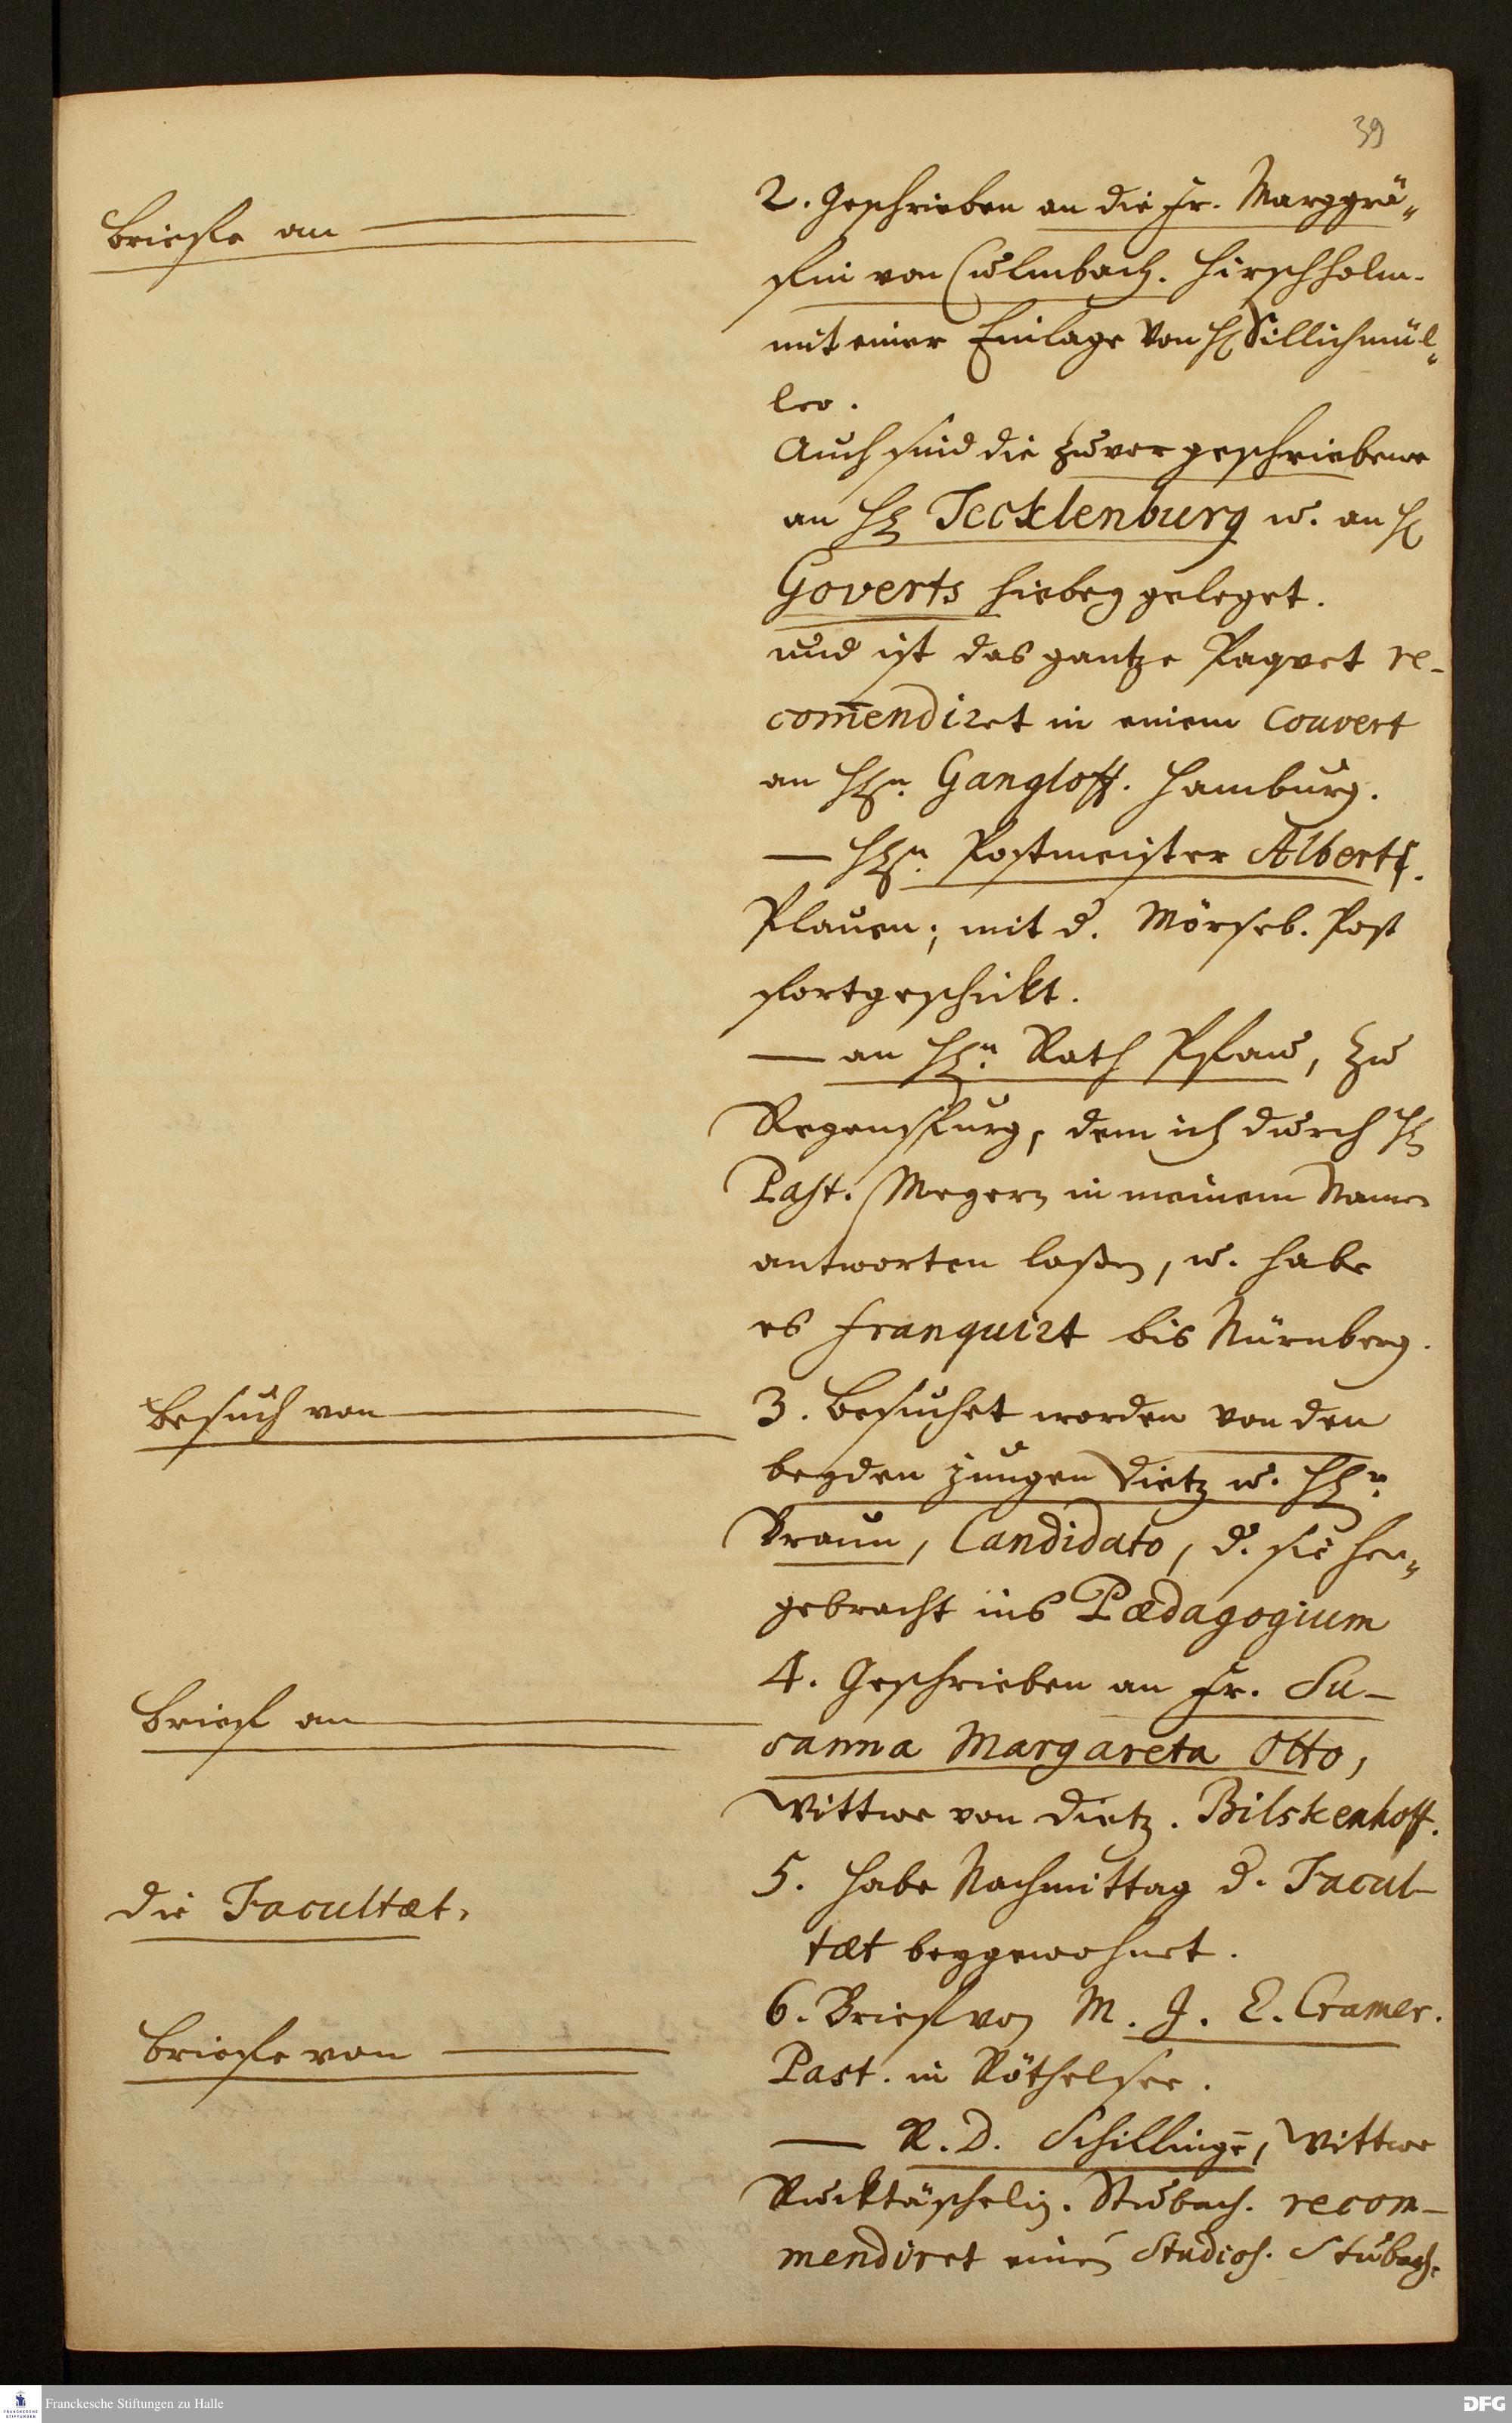 39
Briefe an
2. Geschrieben an die Fr. Marggrä„
fin von Culmbach. Hirschholm.
mit einer Einlage von H Sillichmül„
ler.
Auch sind die zuvor geschriebene
an H Tecklenburg u. an H
Goverts hiebey geleget.
und ist das gantze Paqvet re-
com̄endiret in einem Couvert
an Hn. Gangloff. Hamburg.
— Hn. Postmeister Alberti.
Plauen; mit d. Mörseb. Post
fortgeschickt.
— an Hn. Rath Pfau, zu
Regenspurg, dem ich durch H
Past. Meyern in meinem Namen
antworten laßen, u. habe
es franquirt bis Nürnberg.
Besuch von
3. Besuchet worden von den
beyden jungen Dietz u. Hn.
Braun, Candidato, d. sie her„
gebracht ins Pædagogium
Brief an
4. Geschrieben an Fr. Su-
sanna Margareta Otto,
Wittwe von Dietz. Bilskenhoff.
die Facultæt.
5. Habe Nachmittag d. Facul-
tæt beygewohnet.
Briefe von
6. Brief von M. J. E. Cramer.
Past. in Röthelsee.
— R. D. Schillinge, Wittwe
Rucktäschelin. Stubach. recom-
mendiret einen Studios. Stubach.
Franckesche Stiftungen zu Halle
DFG